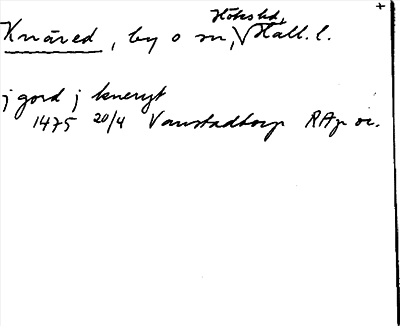 Knäred, by o sn, Hökshd, Hall. l.
j gord j kneryt
1475 20/4 Vanstadtorp RAp or.